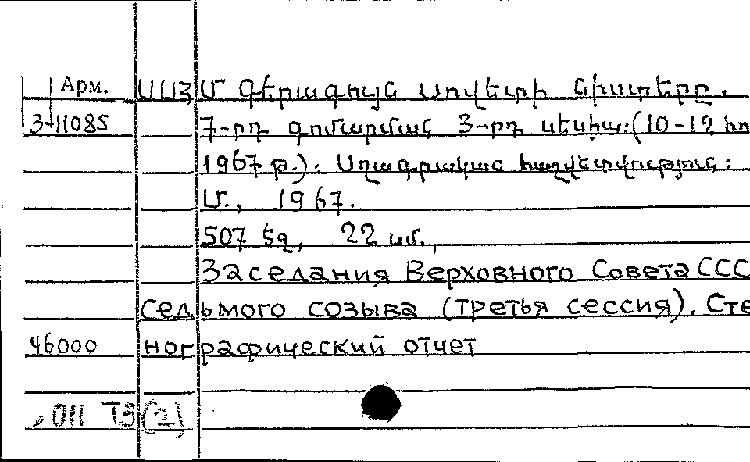 Арм. ՍՍՀՄ Գերագույն Սովետի նիստերը.
3-11085 7-րդ գումարման 3-րդ սեսիա: (10-12 հո
1967 թ.): Սղագրական հաշվետվություն:
Մ., 1967.
507 էջ, 22 սմ.,
Заседания Верховного Совета ССС
седьмого созыва (третья сессия). Сте
46000 нографический отчет
ОП ТЗ(2)